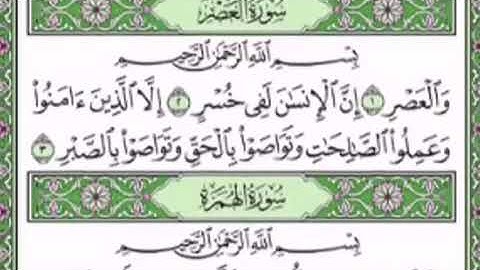 سُورَةُ الْعَصْرِ
بِسْمِ اللَّهِ الرَّحْمَٰنِ الرَّحِيمِ
وَالْعَصْرِ ١ إِنَّ الْإِنسَٰنَ لَفِى خُسْرٍ ٢ إِلَّا الَّذِينَ ءَامَنُوا۟
وَعَمِلُوا۟ الصَّٰلِحَٰتِ وَتَوَاصَوْا۟ بِالْحَقِّ وَتَوَاصَوْا۟ بِالصَّبْرِ ٣
سُورَةُ الْهُمَزَةِ
بِسْمِ اللَّهِ الرَّحْمَٰنِ الرَّحِيمِ